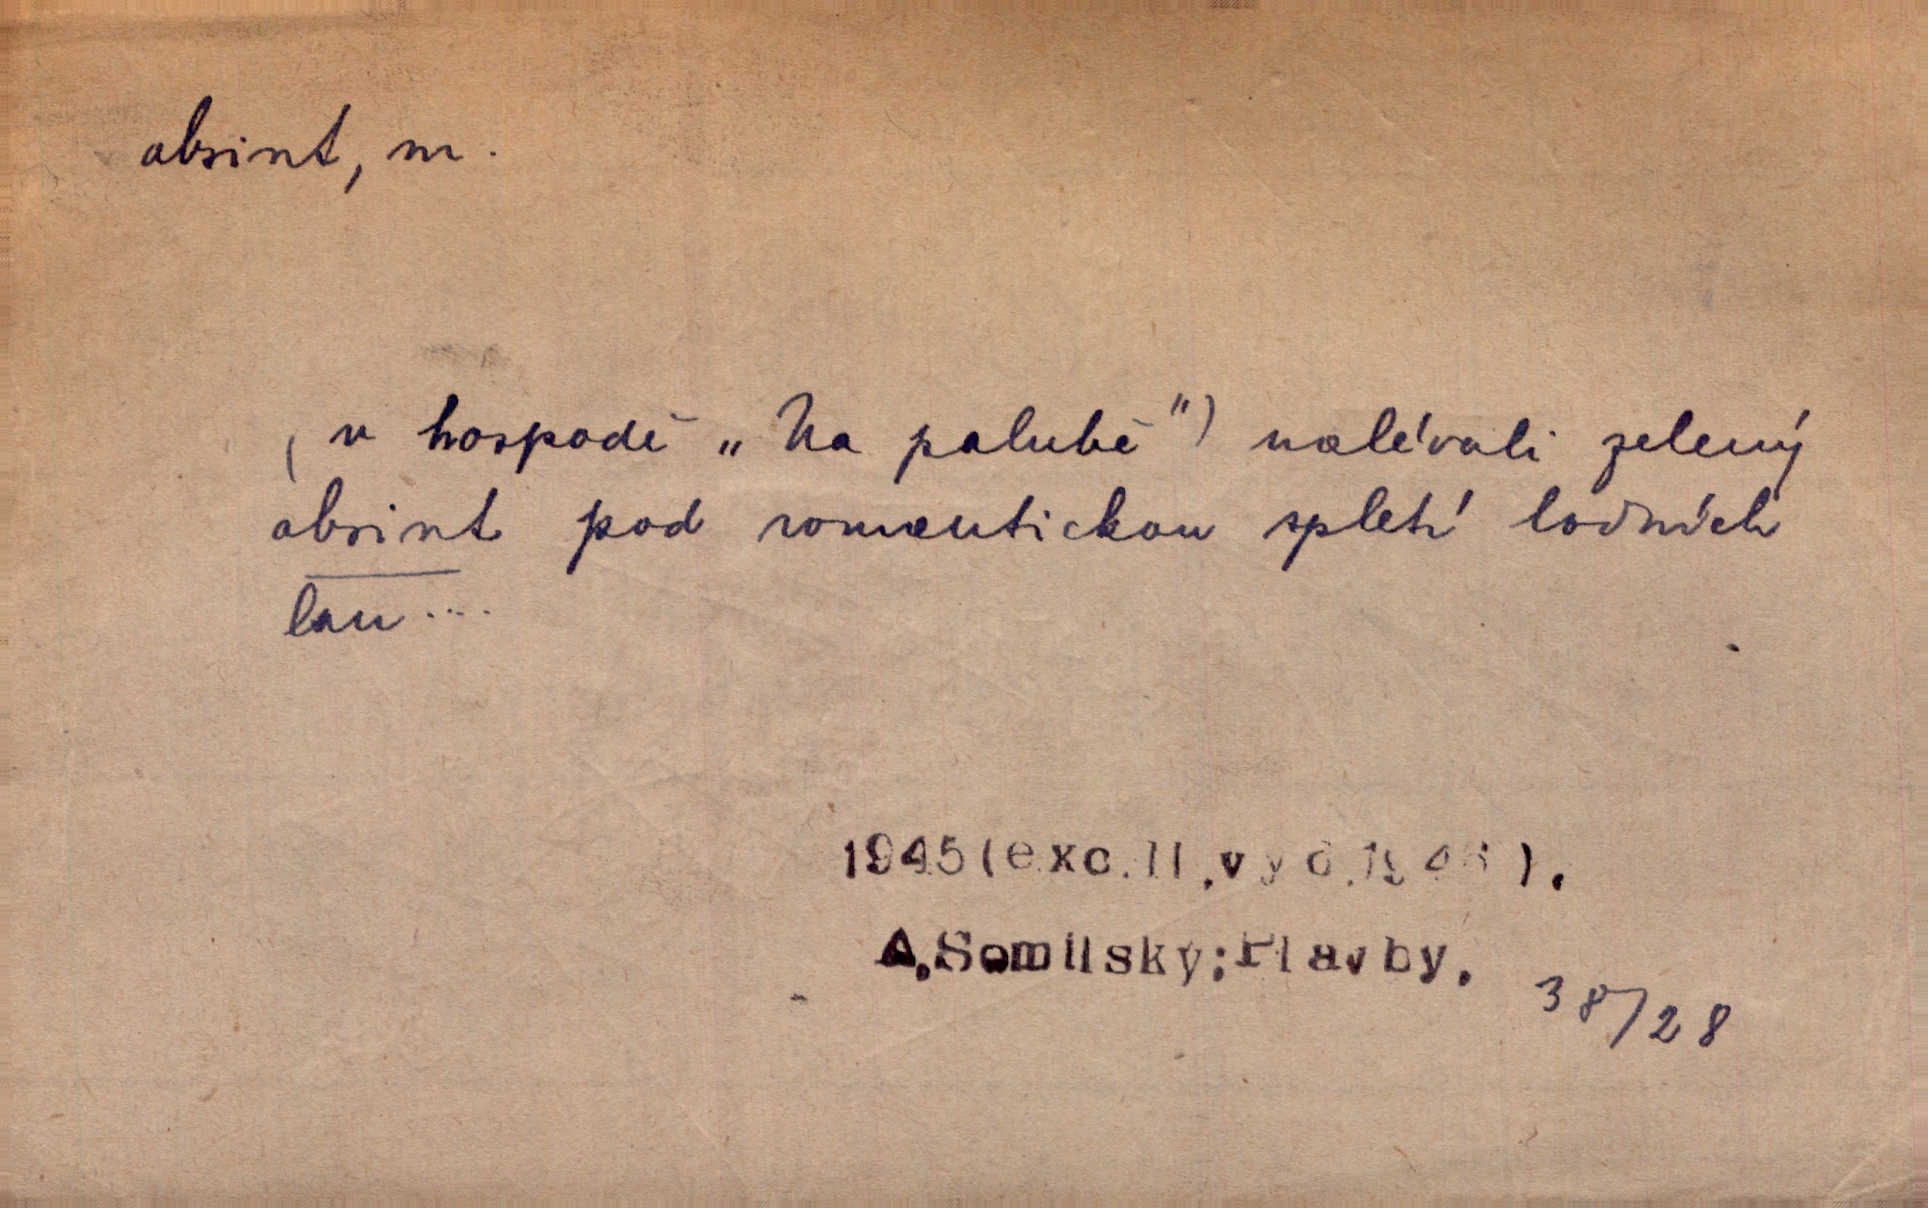 absint, m.
(v hospodě „Na palubě") nalévali zelený
absint pod romantickou spletí lodních
lan ...
1945(exc.II.vyd.1946).
A.Somilsky:Plavby.
38/28